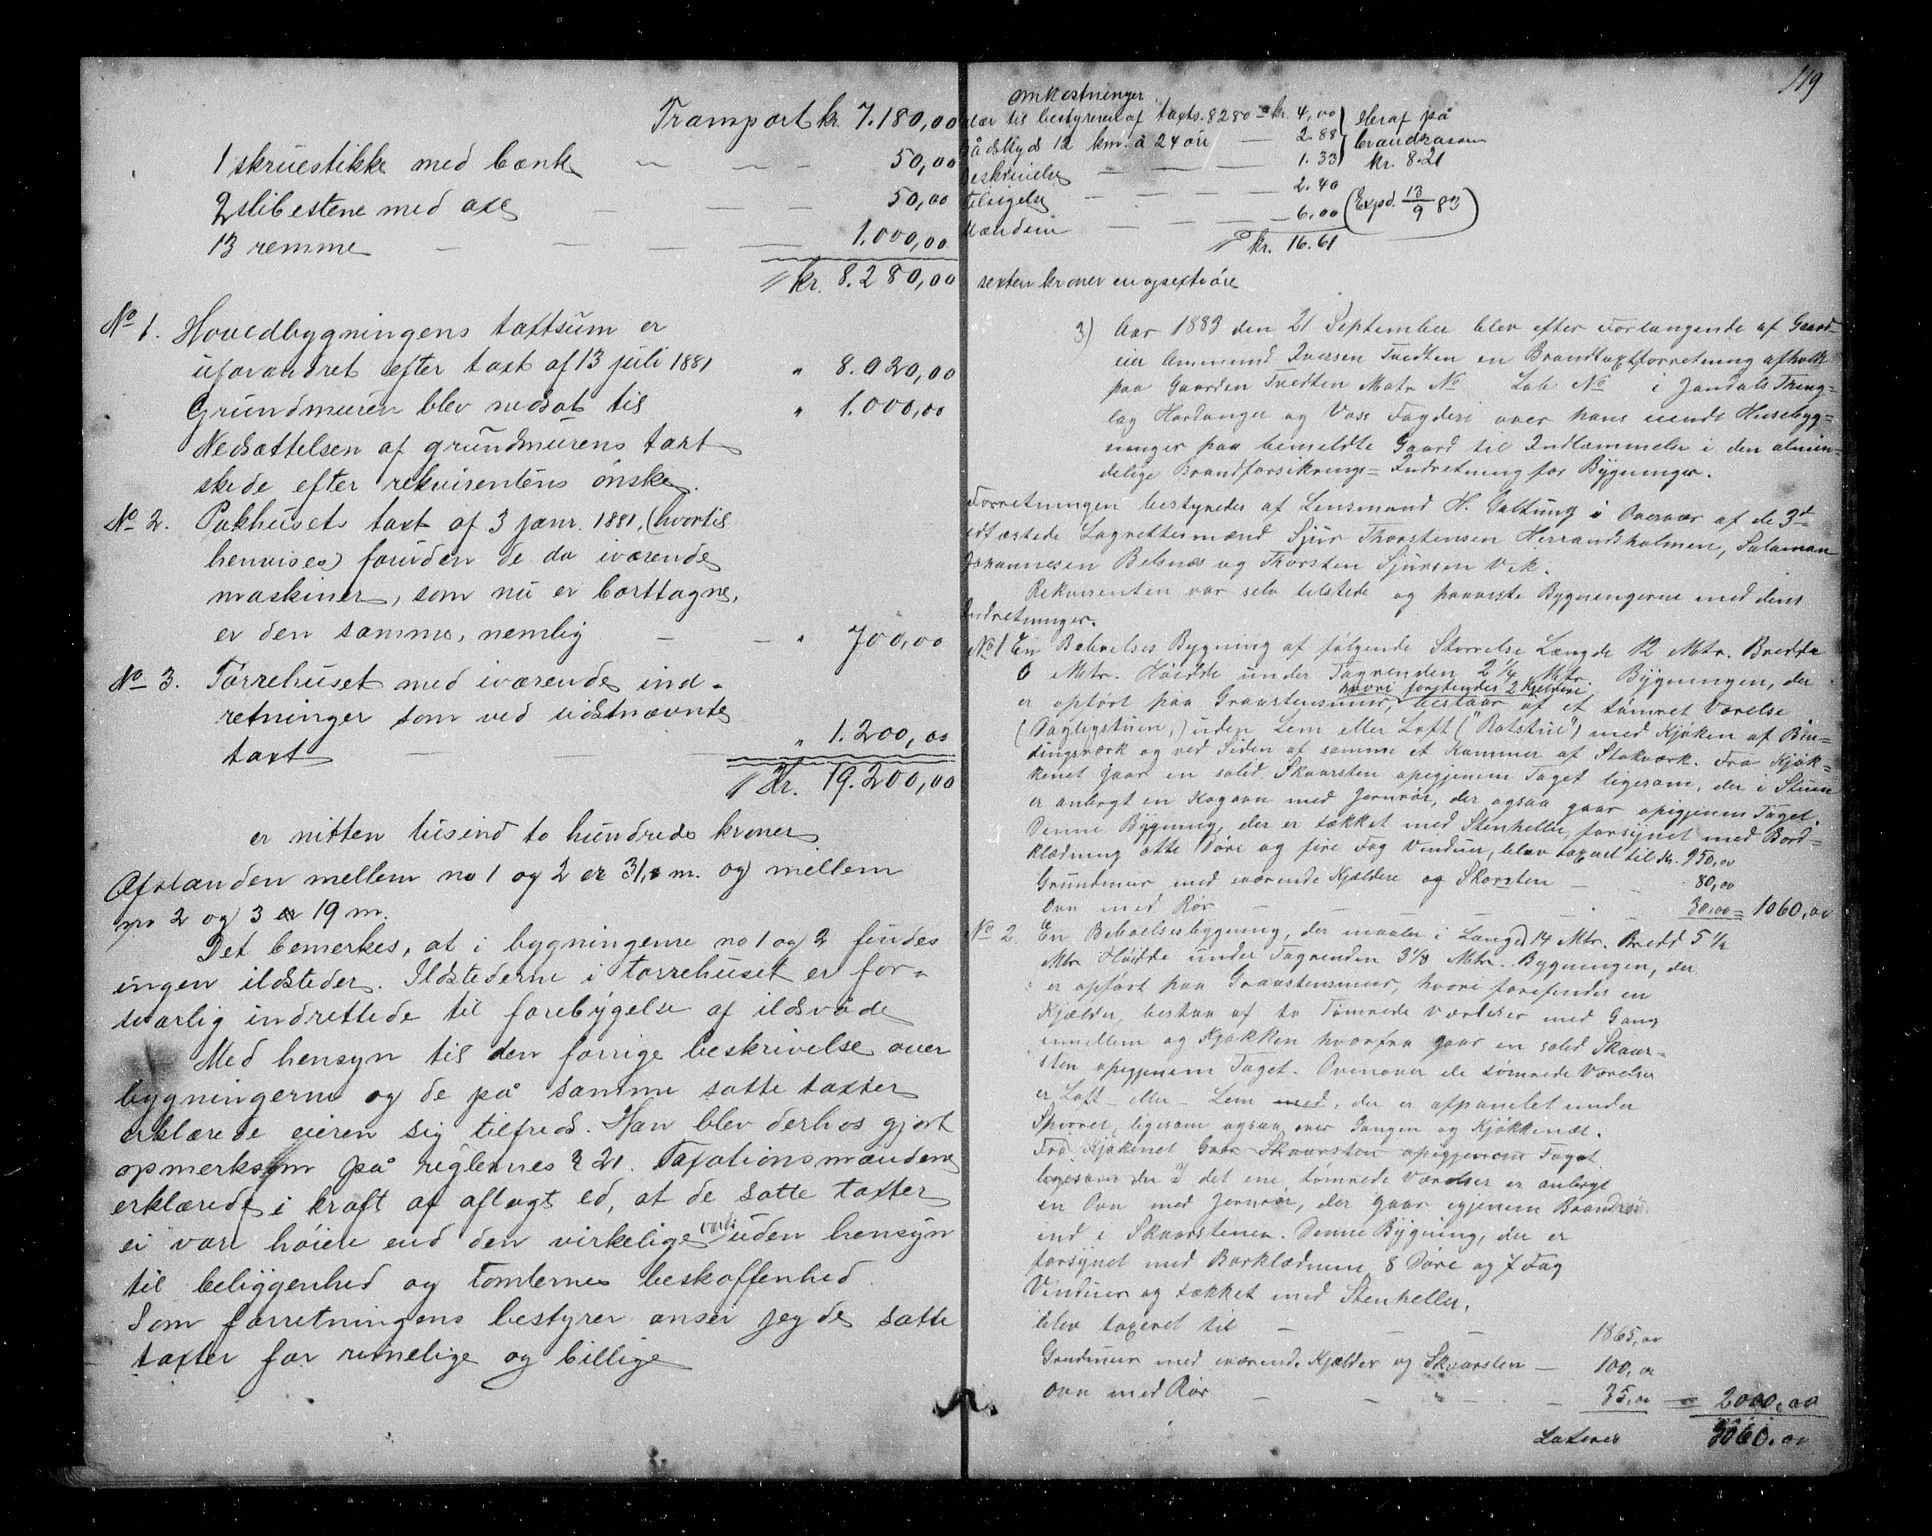 Transport kr. 7.180,00
1 skruestikke med bænk — — — 50,00
2 slibestene med axe — — — 50,00
13 remme — — — 1.000,00
kr. 8.280,00
No 1. Hovedbygningens taxtsum er
uforandret efter taxt af 13 juli 1881 " 8.020,00
Grundmuren blev nedsat til " 1.000,00
Nedsættelsen af grundmurens taxt
skede efter rekvirentens ønske.
No 2. Pakhusets taxt af 3 janr. 1881, (hvortil
henvises) foruden de da iværende
maskiner, som nu er borttagne,
er den samme, nemlig — — " 700,00
No 3. Tørrehuset med iværende ind-
retninger som ved sidstnævnte
taxt — — " 1.200,00
Kr. 19.200,00
er nitten tusind to hundrede kroner
Afstanden mellem no 1 og 2 er 31,5 m. og mellem
no 2 og 3 er 19 m.
Det bemerkes, at i bygningerne no 1 og 2 findes
ingen ildsteder. Ildstederne i tørrehuset er for-
svarlig indrettede til forebygelse af ildsvåde
Med hensyn til den forrige beskrivelse over
bygningerne og de på samme satte taxter
erklærede eieren sig tilfreds. Han blev derhos gjort
opmerksom på reglernes § 21. Taxationsmændene
erklærede i kraft af aflagt ed, at de satte taxter
ei var høiere end den virkelige værdi uden hensyn
til beliggenhed og tomternes beskaffenhed.
Som forretningens bestyrer anser jeg de satte
taxter for rimelige og billige
119
Omkostninger
til bestyreren af taxts. 8280 = kr. 4,00 deraf på
12 km. à 24 øre — 2.88 brandkassen
Beskrivelse — — — 1.33 kr. 8.21
tilsigelse — — — 2.40
Mændene — — — 6,00 (Expd. 13/9 83)
kr. 16.61
sexten kroner en og sexti øre
3) Aar 1883 den 21 September blev efter Forlangende af Gaard-
eier Ammund Iversen Tvedten en Brandtaxtforretning afholdt
paa Gaarden Tvedten Matr No Løb No i Jondals Thing-
lag Hardanger og Voss Fogderi over hans eiende Husebyg-
ninger paa bemeldte Gaard til Indlemmelse i den almin-
delige Brandforsikrings-Indretning for Bygninger.
Forretningen bestyredes af Lensmand H. Gattung i Overvær af de 3de
edfæstede Lagrettemænd Sjur Thorstensen Herrandsholmen, Salamon
Johannesen Belsnæs og Thorsten Sjursen Vik.
Rekvirenten var selv tilstede og paaviste Bygningerne med dens
Indretninger.
No 1 En Beboelses Bygning af følgende Størrelse Længde 12 Mtr. Bredde
6 Mtr. Høidde under Tagrenden 2 1/4 Mtr. Bygningen, der
er opført paa Graastensmur, hvori forefindes 2 Kjeldere, bestaar af et tømret Værelse
(Dagligstuen,) uden Lem eller Loft ("Røkstue") med Kjøken af Bin-
dingsværk og ved Siden af samme et Kammer af Stokværk. Fra Kjøk-
kenet gaar en solid Skaarsten opigjenem Taget ligesom, der i Stuen
er anbragt en Kogovn med Jernrør, der ogsaa gaar opigjenem Taget.
Denne Bygning, der er tækket med Stenheller, forsynet med Bord-
klædning otte Døre og fire Fag Vinduer, blev taxeret til Kr. 950,00
Grundmur med iværende Kjældere og Skorsten — 80,00
Ovn med Rør — — — 30,00 = 1060,00
No 2. En Beboelsesbygning, der maaler i Længd 14 Mtr. Bredd 5 1/2
Mtr Høidde under Tagrenden 3 1/8 Mtr. Bygningen, der
er opført paa Graastensmur, hvori forefindes en
Kjælder, bestaa af to Tømrede Værelser med Gang
imellem og Kjøkken hvorfra gaar en solid Skaar-
sten opigjenem Taget. Ovenover de tømrede Værelser
er Loft eller Lem med, der er afpanelet under
Spirret, ligesom ogsaa over Gangen og Kjøkkenet.
Fra Kjøkenet Gaar Skaarsten opigjenem Taget
ligesom der I det ene tømrede Værelser er anbragt
en Ovn med Jernrør, der gaar igjenem Brandmur
ind i Skaarstenen. Denne Bygning, der er
forsynet med Borklædning 8 Døre og 7 Fag
Vinduer og tækket med Stenheller,
blev taxeret til — — — 1865,00
Grundmur med iværende Kjælder og Skaarsten — 100,00
Ovn med Rør — — — 35,00 = 2000,00
Lateres 3060,00